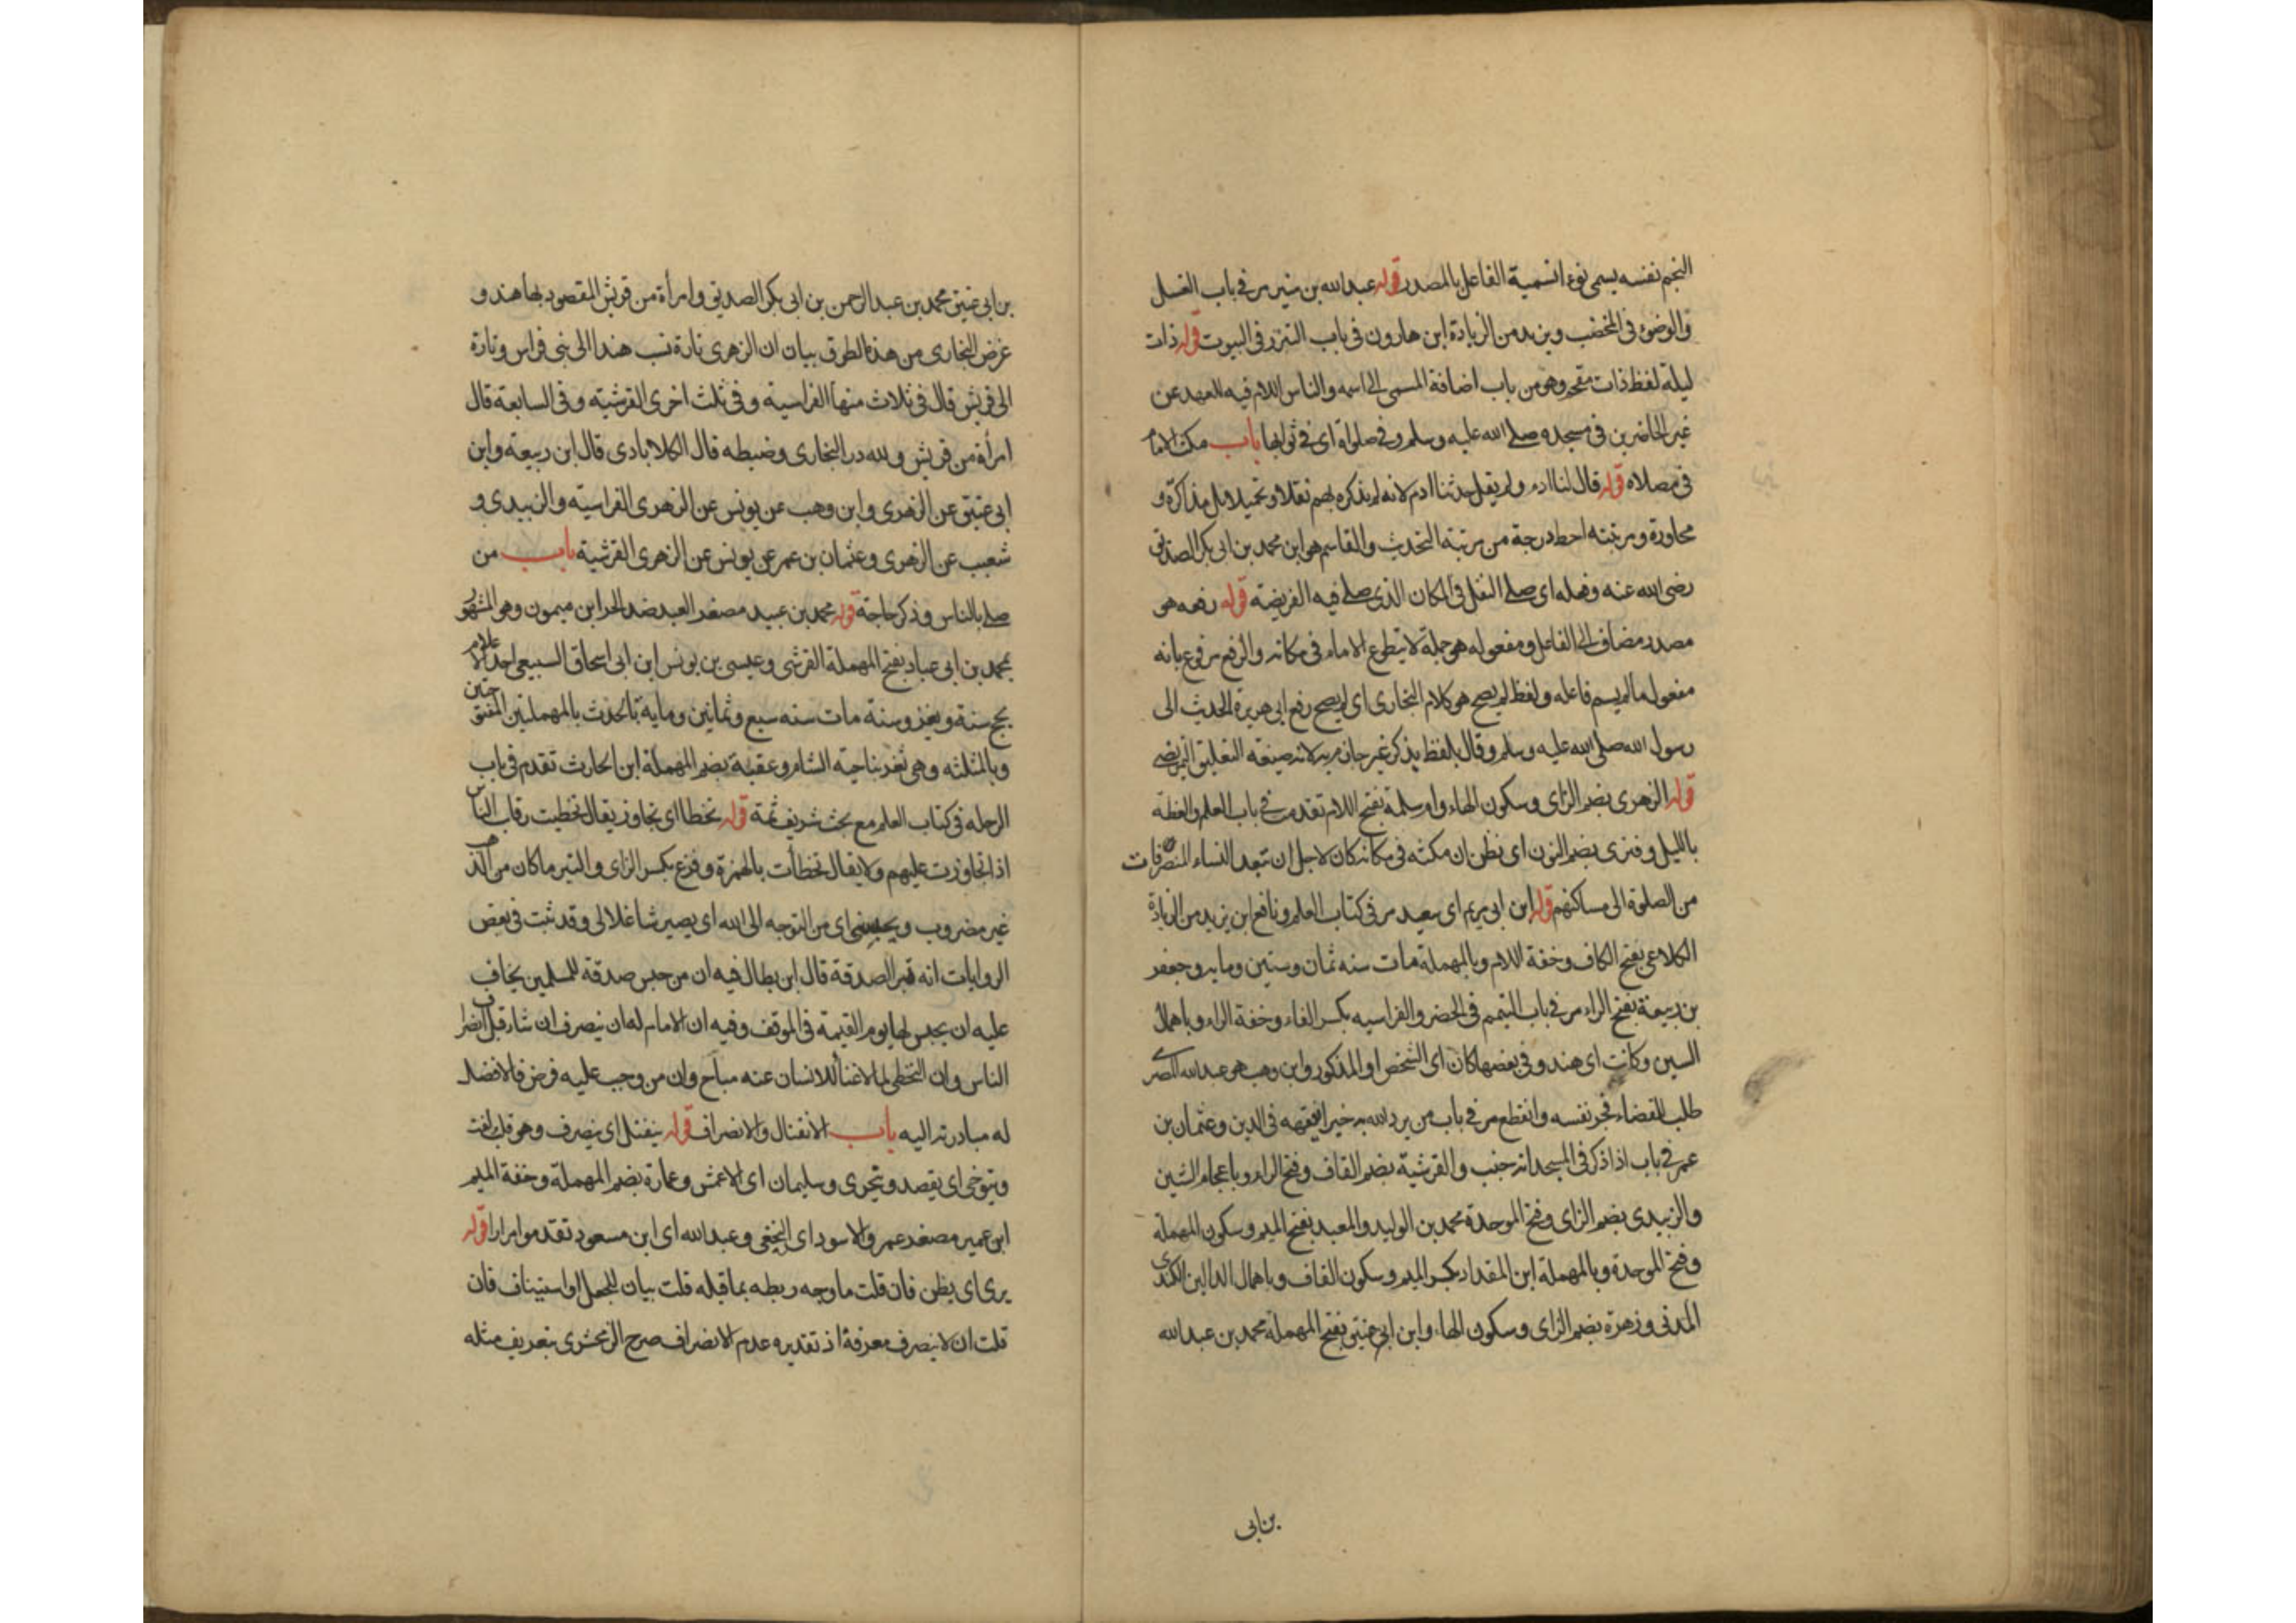 النجم نفسه يسمى نوءا تسمية الفاعل بالمصدر قوله عبدالله بن منير مر في باب الغسل
والوضوء في المخضب ويزيد من الزيادة ابن هارون في باب التبرز في البيوت قوله ذات
ليلة لفظ ذات مقحم وهو من باب اضافة المسمى الى اسمه والناس اللام فيه للعهد عن
غير الحاضرين في مسجده صلى الله عليه وسلم وفي صلواة اى في ثوابها باب مكث الامام
في مصلاه قوله قال لنا ادم ولم يقل حدثنا ادم لانه لم يذكره لهم نقلا وتحميلا بل مذاكرة و
محاورة ومرتبته احط درجة من مرتبة التحديث والقاسم هو ابن محمد بن ابى بكر الصديق
رضى الله عنه وفعله اى صلى النفل في المكان الذى صلى فيه الفريضة قوله رفعه هو
مصدر مضاف الى الفاعل ومفعوله هو جملة لا يتطوع الامام في مكانه والرفع مرفوع بانه
مفعول ما لم يسم فاعله ولفظ لم يصح هو كلام البخارى اى لم يصح رفع ابى هريرة الحديث الى
رسول الله صلى الله عليه وسلم وقال بلفظ يذكر غير جازم به لانه صيغة التعليق التمريضى
قوله الزهرى بضم الزاى وسكون الهاء وام سلمة بفتح اللام تقدمت في باب العلم والعظة
بالليل وفنرى بضم النون اى نظن ان مكثه في مكانه كان لاجل ان تبعد النساء المنصرفات
من الصلوة الى مساكنهم قوله ابن ابى مريم اى سعيد مر في كتاب العلم ونافع ابن يزيد من الزيادة
الكلاعى بفتح الكاف وخفة اللام وبالمهملة مات سنه ثمان وستين ومايه وجعفر
بن ربيعة بفتح الراء مر في باب التيمم في الحضر والفراسيه بكسر الفاء وخفة الراء وباهمال
السين وكانت اى هند وفي بعضها كان اى الشخص او المذكور وابن وهب هو عبدالله المصرى
طلب للقضاء فجنن نفسه وانقطع مر في باب من يرد الله به خيرا يفقهه في الدين وعثمان بن
عمر في باب اذا ذكر في المسجد انه جنب والقرشية بضم القاف وفتح الراء وباعجام الشين
والزبيدى بضم الزاى وفتح الموحدة محمد بن الوليد والمعبد بفتح الميم وسكون المهملة
وفتح الموحدة وبالمهملة ابن المقداد بكسر الميم وسكون القاف وباهمال الدالين الكندى
المدنى وزهرة بضم الزاى وسكون الهاء وابن ابى عتيق بفتح المهملة محمد بن عبدالله
بن ابى
بن ابى عتيق محمد بن عبد الرحمن بن ابى بكر الصديق وامرأة من قريش المقصود بها هند و
غرض البخارى من هذه الطرق بيان ان الزهرى تارة نسب هندا الى بنى فراس وتارة
الى قريش قال في ثلاث منها الفراسية وفي ثلث اخرى القرشية وفي السابعة قال
امرأة من قريش ولله در البخارى وضبطه قال الكلابادى قال ابن ربيعة وابن
ابى عتيق عن الزهرى وابن وهب عن يونس عن الزهرى الفراسية والزبيدى و
شعيب عن الزهرى وعثمان بن عمر عن يونس عن الزهرى القرشية باب من
صلى بالناس وذكر حاجة قوله محمد بن عبيد مصغر العبد ضد الحر ابن ميمون وهو المشهور
بمحمد بن ابى عباد بفتح المهملة القرشى وعيسى بن يونس ابن ابى اسحاق السبيعى احد الاعلام
يحج سنة ويغزو سنة مات سنه سبع وثمانين وماية بالحدث بالمهملتين المفتوحتين
وبالمثلثه وهى ثغر بناحية الشام وعقبة بضم المهملة ابن الحارث تقدم في باب
الرحله في كتاب العلم مع بحث شريف ثمة قوله تخطا اى تجاوز يقال تخطيت رقاب الناس
اذا تجاوزت عليهم ولا يقال تخطأت بالهمزة وفزع بكسر الزاى والتبر ما كان من الذهب
غير مضروب ويحبسنى اى من التوجه الى الله اى يصير شاغلا لى وقد ثبت في بعض
الروايات انه تبر الصدقة قال ابن بطال فيه ان من حبس صدقة للمسلمين يخاف
عليه ان يحبس لها يوم القيمة في الموقف وفيه ان الامام له ان ينصرف ان شاء قبل انصراف
الناس وان التخطى لما لا غنا للانسان عنه مباح وان من وجب عليه فرض فالافضل
له مبادرته اليه باب الانفتال والانصراف قوله ينفتل اى ينصرف وهو قلب لفت
ويتوخى اى يقصد ويتحرى وسليمان اى الاعمش وعمارة بضم المهملة وخفة الميم
ابن عمير مصغر عمر والاسود اى النخعى وعبدالله اى ابن مسعود تقدموا مرارا قوله
يرى اى يظن فان قلت ما وجه ربطه بما قبله قلت بيان للجعل او استيناف فان
قلت ان لا ينصرف معرفة اذ تقديره عدم الانصراف صرح الزمخشرى بتعريف مثله